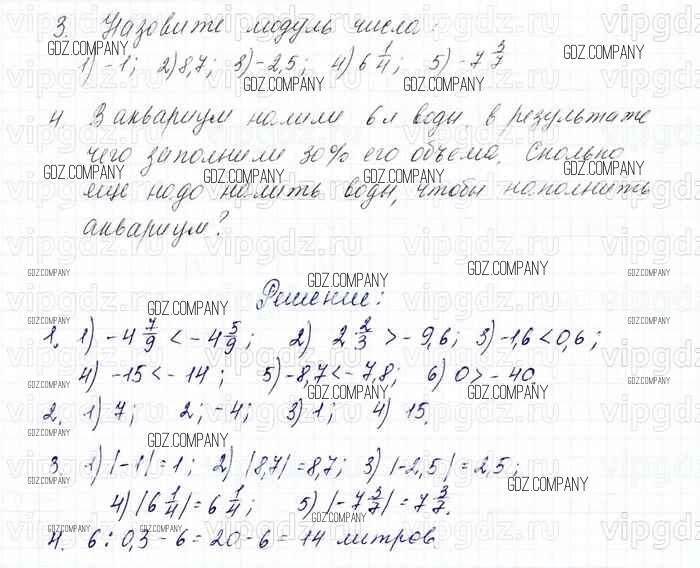 3. Назовите модуль числа:
1) -1; 2) 8,7; 3) -2,5; 4) 6 1/4; 5) -7 3/7
4. В аквариум налили 6 л воды, в результате
чего заполнили 30% его объема. Сколько
еще надо налить воды, чтобы наполнить
аквариум?
Решение:
1. 1) -4 7/9 < -4 5/9; 2) 2 2/3 > -9,6; 3) -1,6 < 0,6;
4) -15 < -14; 5) -8,7 < -7,8; 6) 0 > -40.
2. 1) 7; 2; -4; 3) 1; 4) 15.
3. 1) |-1| = 1; 2) |8,7| = 8,7; 3) |-2,5| = 2,5;
4) |6 1/4| = 6 1/4; 5) |-7 3/7| = 7 3/7.
4. 6 : 0,3 - 6 = 20 - 6 = 14 литров
GDZ.COMPANY
vipgdz.ru